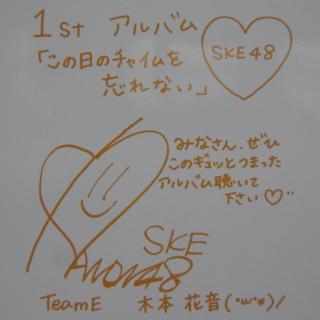 1st アルバム
「この日のチャイムを
忘れない」
SKE48
みなさん、ぜひ
このギュッとつまった
アルバム聴いて
下さい♡
SKE
48
TeamE 木本 花音(・w・*)/